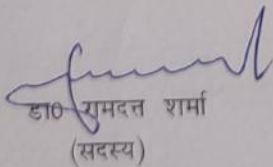 डा० रामदत्त शर्मा
(सदस्य)